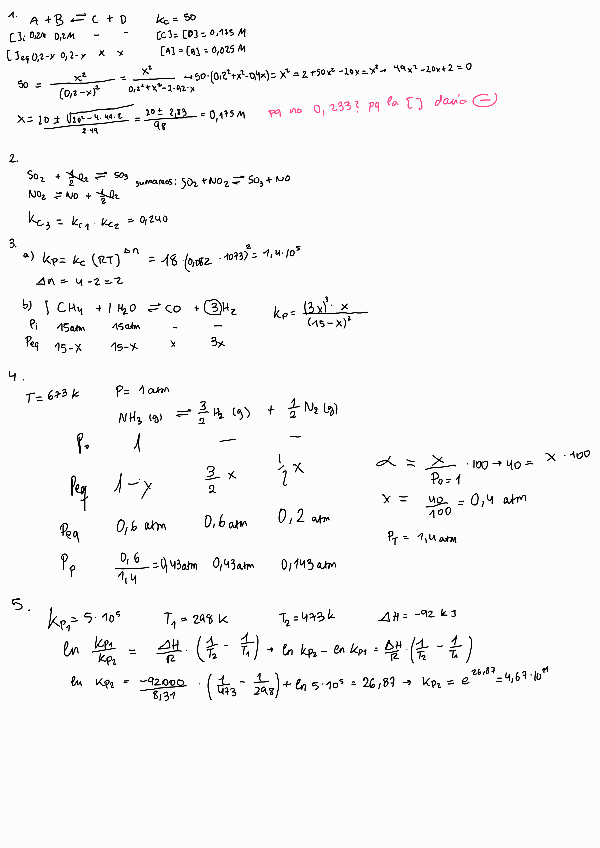 1. A + B ⇌ C + D    Kc = 50
[ ]i 0,2M 0,2M - -    [C] = [D] = 0,175 M
[ ]eq 0,2-x 0,2-x x x    [A] = [B] = 0,025 M
50 = x²/(0,2-x)² = x²/(0,2²+x²-2·0,2·x) → 50·(0,2²+x²-0,4x) = x² = 2+50x²-20x = x² → 49x²-20x+2 = 0
x = (20 ± √(20²-4·49·2))/(2·49) = (20 ± 2,83)/98 = 0,175 M    pq no 0,233? pq la [ ] daria ⊖
2.
SO₂ + ½O₂ ⇌ SO₃    sumamos: SO₂ + NO₂ ⇌ SO₃ + NO
NO₂ ⇌ NO + ½O₂
Kc₃ = Kc₁ · Kc₂ = 0,240
3.
a) Kp = Kc (RT)^Δn = 18·(0,082 · 1073)² = 1,4·10⁵
Δn = 4-2 = 2
b) 1 CH₄ + 1 H₂O ⇌ CO + 3 H₂    Kp = (3x)³ · x/(15-x)²
Pi 15atm 15atm - -
Peq 15-x 15-x x 3x
4.
T = 673 K    P = 1 atm
NH₃ (g) ⇌ 3/2 H₂ (g) + 1/2 N₂ (g)
P₀ 1 - -
Peq 1-x 3/2 x 1/2 x    α = x/P₀=1 · 100 → 40 = x · 100
x = 40/100 = 0,4 atm
Peq 0,6 atm 0,6 atm 0,2 atm
PT = 1,4 atm
Pp 0,6/1,4 = 0,43atm 0,43atm 0,143atm
5.
Kp₁ = 5·10⁵    T₁ = 298 K    T₂ = 473 K    ΔH = -92 KJ
ln Kp₁/Kp₂ = ΔH/R · (1/T₂ - 1/T₁) → ln Kp₂ - ln Kp₁ = ΔH/R · (1/T₂ - 1/T₁)
ln Kp₂ = -92000/8,31 · (1/473 - 1/298) + ln 5·10⁵ = 26,87 → Kp₂ = e^26,87 = 4,67·10¹¹